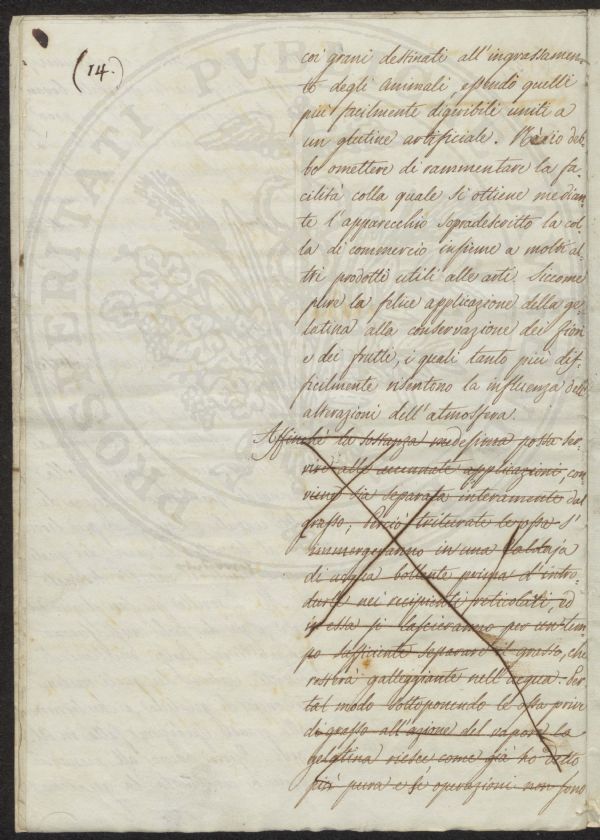 (14.)
coi grani destinati all'ingrassamen-
to degli animali, essendo quelli
più facilmente digeribili uniti a
un glutine artificiale. Nè io deb-
bo omettere di rammentare la fa-
cilità colla quale si ottiene median-
te l'apparecchio sopradescritto la col-
la di commercio insieme a molti al-
tri prodotti utili alle arti. Siccome
pure la felice applicazione della ge-
latina alla conservazione dei fiori
e dei frutti, i quali tanto più dif-
ficilmente risentono la influenza dell
alterazioni dell'atmosfera.
Affinchè la sostanza medesima possa ser-
vire alle accennate applicazioni, con
viene sia separata interamente dal
grasso; perciò triturate le ossa s'
immergeranno in una Caldaja
di acqua bollente prima d'intro-
durle nei recipienti reticolati, ed
in essa si lascieranno per un tem-
po sufficiente separare il grasso, che
resterà galleggiante nell'acqua. Per
tal modo sottoponendo le ossa prive
di grasso all'azione del vapore la
gelatina riesce come già ho detto
più pura e le operazioni non sono
PROSPERITATI PUBL